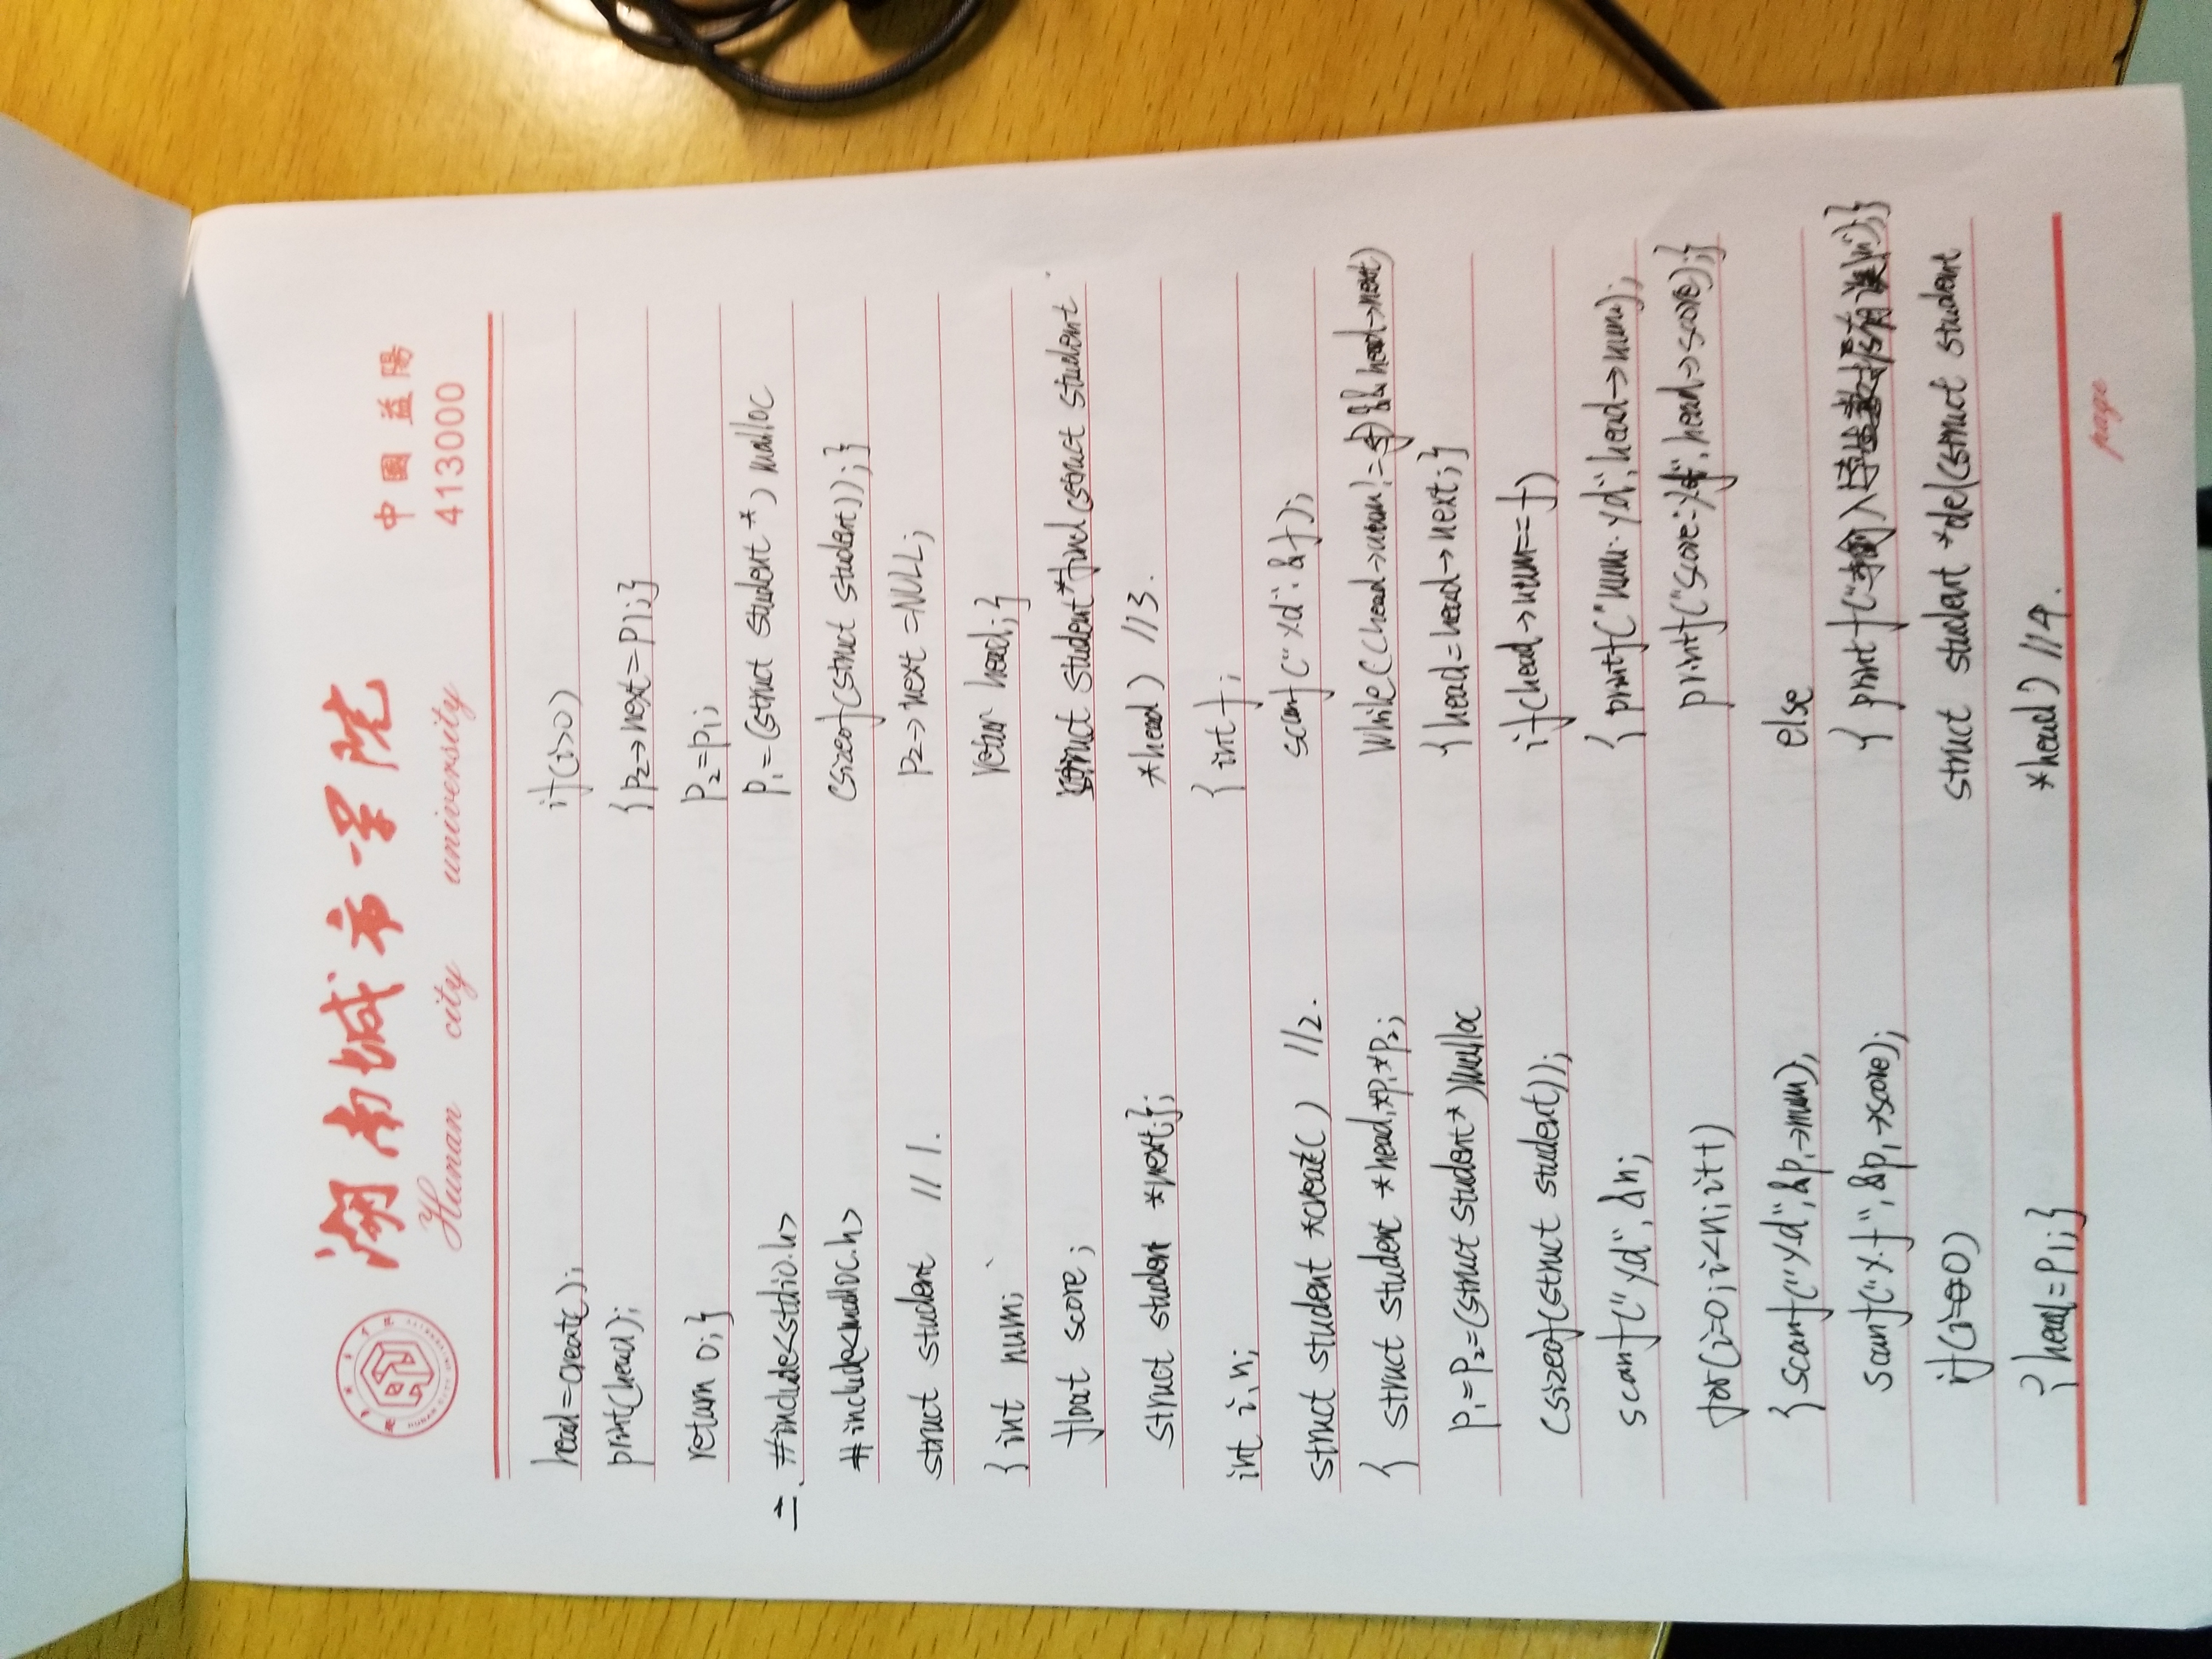 湖南城市学院
Hunan city university
中國 益陽
413000
head=creat();
print(head);
return 0;}
二. #include<stdio.h>
#include<malloc.h>
struct student //1.
{int num;
float score;
struct student *next;};
int i,n;
struct student *creat() //2.
{ struct student *head,*p1,*p2;
p1=p2=(struct student*)malloc
(sizeof(struct student));
scanf("%d",&n;
for(i=0;i<n;i++)
{scanf("%d",&p1→num);
scanf("%f",&p1→score);
if(i==0)
{head=p1;}
if(i>0)
{p2→next=p1;}
p2=p1;
p1=(struct student *) malloc
(sizeof(struct student));}
p2→next=NULL;
retur head;}
struct student*find(struct student
*head) //3.
{int f;
scanf("%d",&f);
while((head→num!=f)&&head→next)
{head=head→next;}
if(head→num==f)
{printf("num:%d",head→num);
printf("score:%f",head→score);}
else
{printf("入有误\n");}
struct student *del(struct student
*head) //4.
page